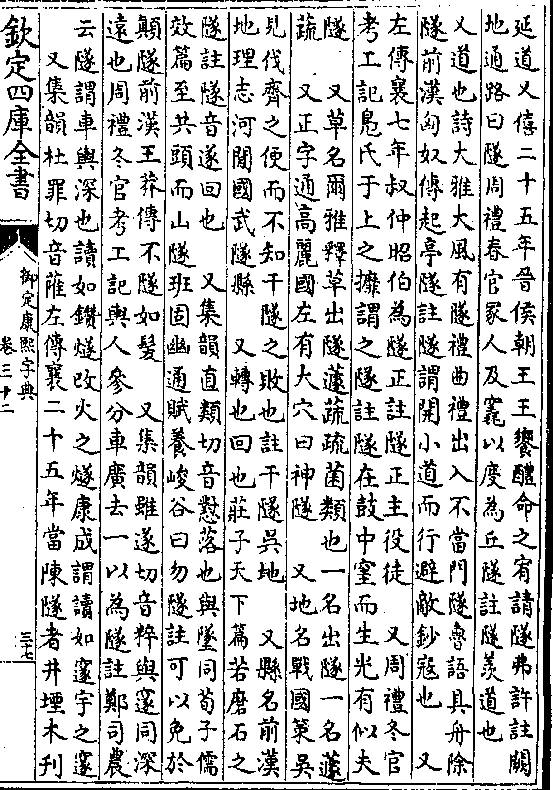 延道又僖二十五年晉侯朝王王饗醴命之宥請隧弗許註闕
地通路曰隧周禮春官冢人及竁以度為丘隧註隧羨道也
又道也詩大雅大風有隧禮曲禮出入不當門隧魯語具舟除
隧前漢匈奴傳起亭隧註隧謂開小道而行避敵鈔寇也　又
左傳襄七年叔仲昭伯為隧正註隧正主役徒　又周禮冬官
考工記鳧氏于上之攠謂之隧註隧在鼓中窐而生光有似夫
隧　又草名爾雅釋草出隧蘧蔬疏菌類也一名出隧一名蘧
蔬　又正字通高麗國左有大穴曰神隧　又地名戰國策吳
見伐齊之便而不知干隧之敗也註干隧吳地　又縣名前漢
地理志河閒國武隧縣　又轉也回也莊子天下篇若磨石之
隧註隧音遂回也　又集韻直類切音懟落也與墜同荀子儒
效篇至共頭而山隧班固幽通賦養峻谷曰勿隧註可以免於
顛隧前漢王莽傳不隧如髮　又集韻雖遂切音粹與邃同深
遠也周禮冬官考工記輿人參分車廣去一以為隧註鄭司農
云隧謂車輿深也讀如鑽燧改火之燧康成謂讀如邃宇之邃
又集韻杜罪切音䧹左傳襄二十五年當陳隧者井堙木刊
欽定四庫全書
御定康熙字典
卷三十二
三十七